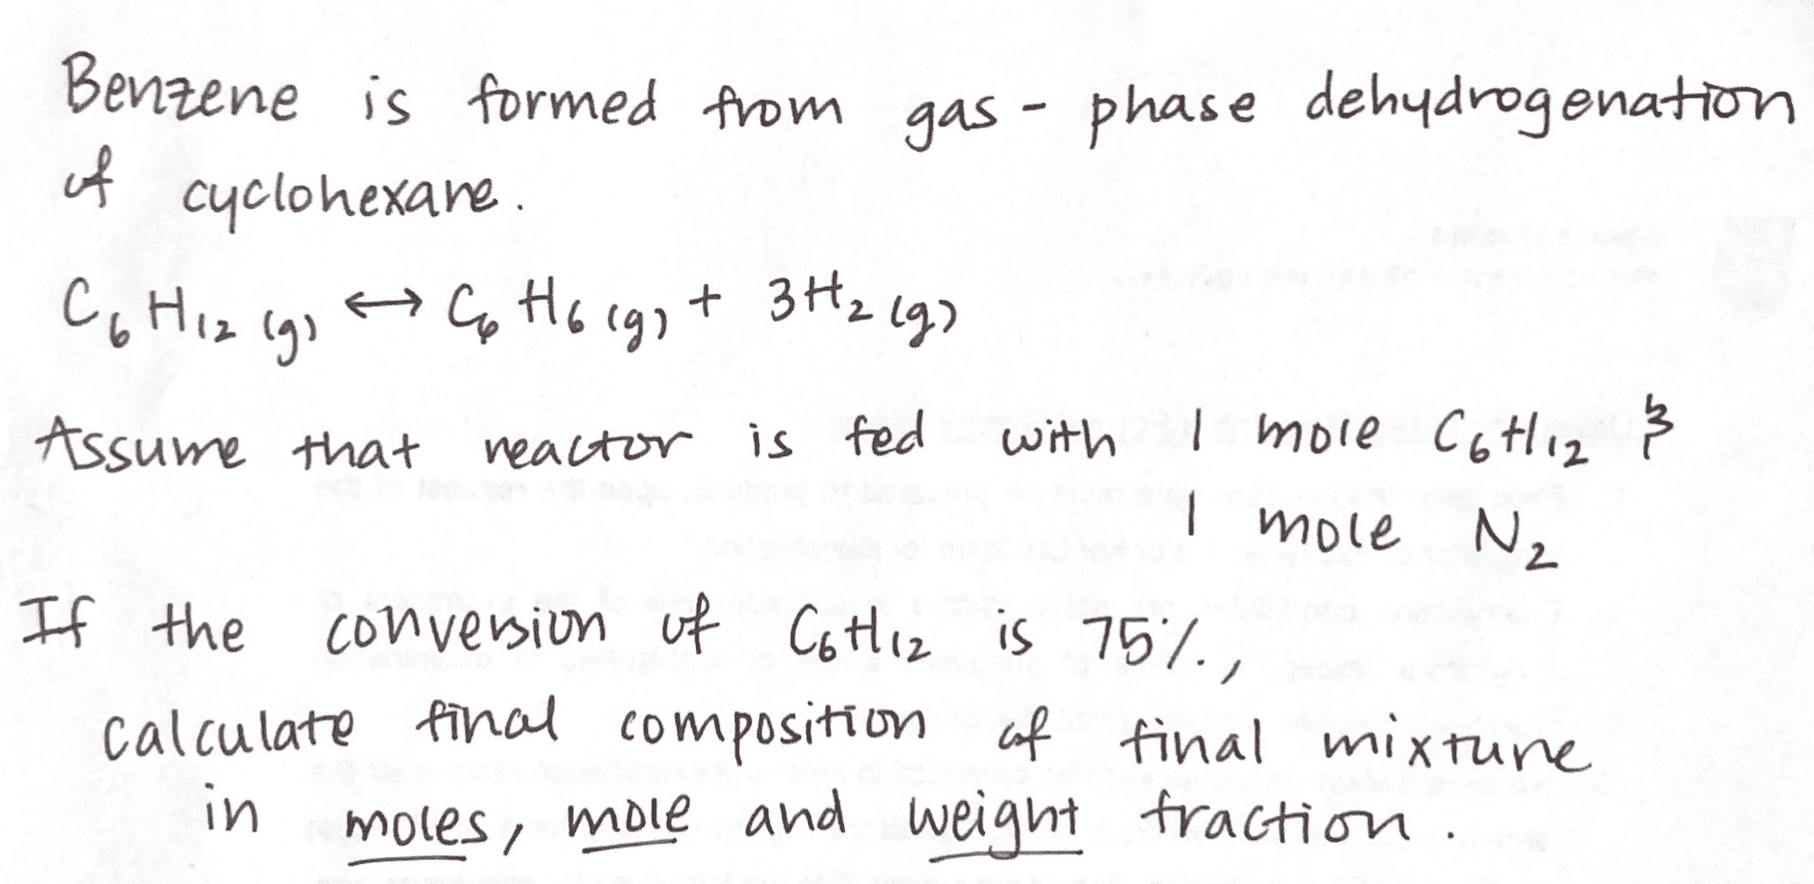 Benzene is formed from gas - phase dehydrogenation
of cyclohexane.
C₆H₁₂(g) ↔ C₆H₆(g) + 3H₂(g)
Assume that reactor is fed with 1 mole C₆H₁₂ &
1 mole N₂
If the conversion of C₆H₁₂ is 75%,
calculate final composition of final mixture
in moles, mole and weight fraction.